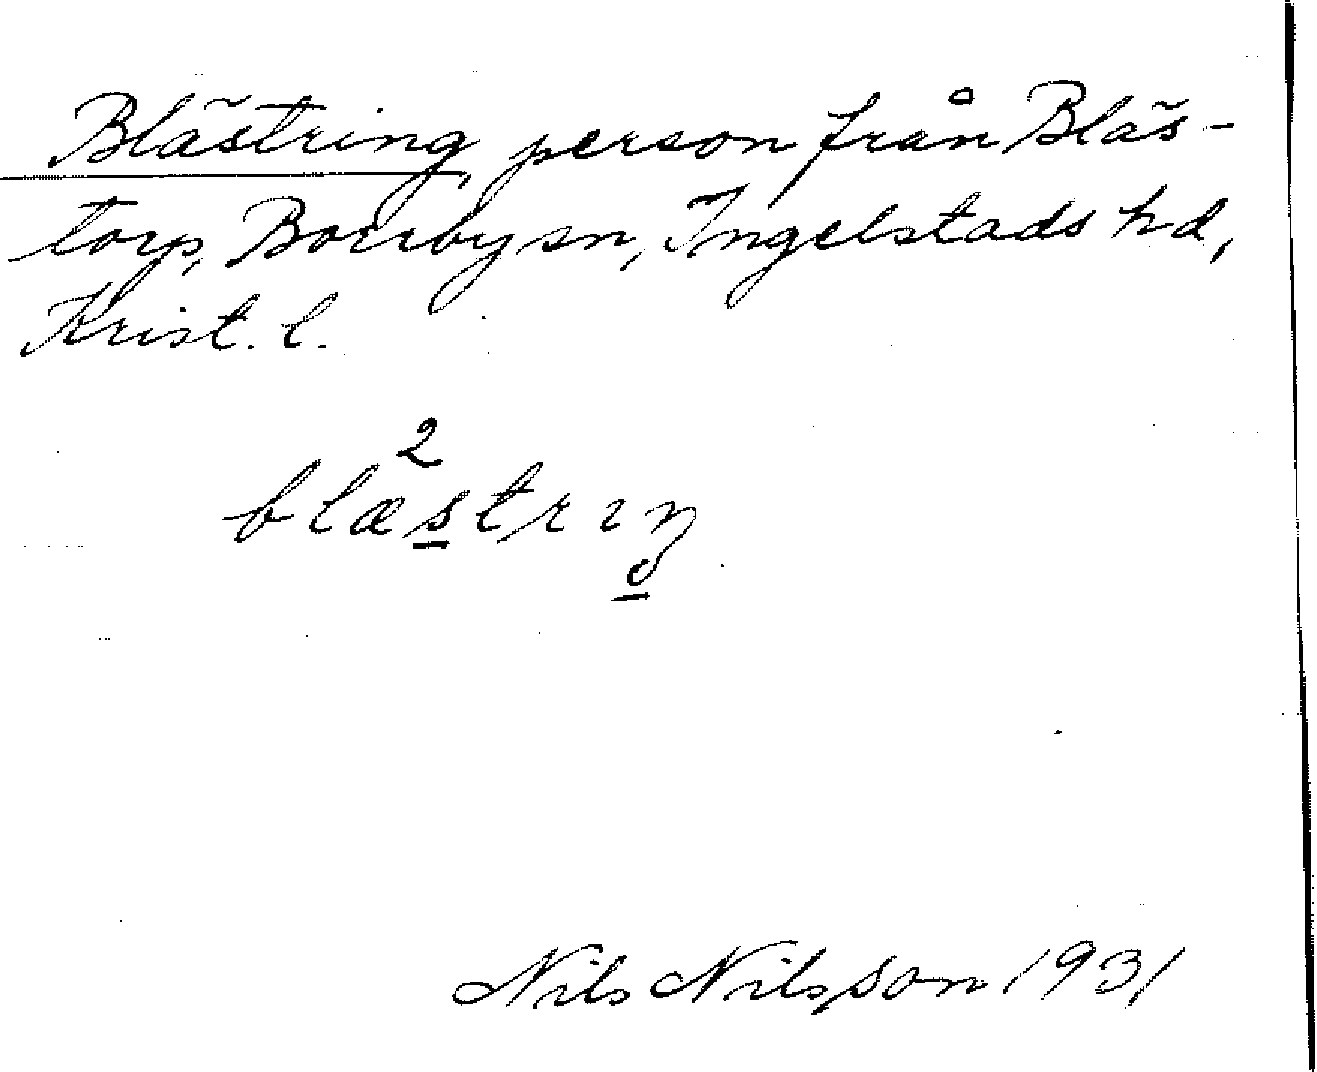 Blästring, person från Bläs-
torp, Borrby sn, Ingelstads hd,
Krist. l.
2
blæstrıŋ
Nils Nilsson 1931